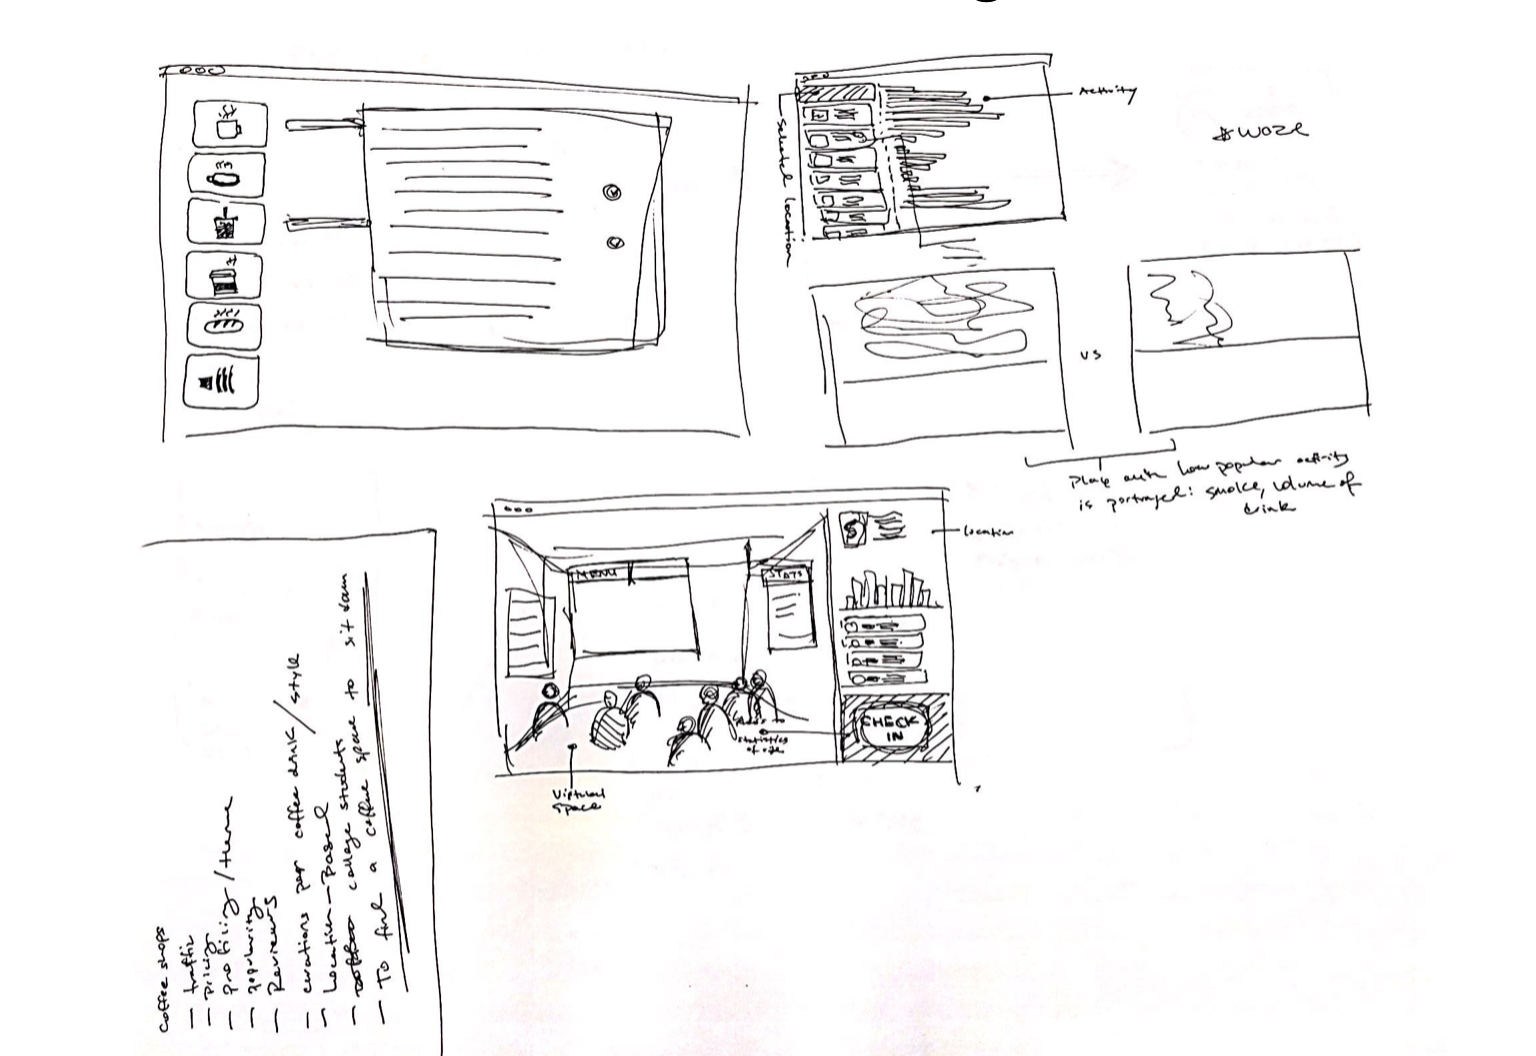 Activity
Selected Location
vs
Play with how popular activity
is portrayed: smoke, volume of
drink
Location
MENU
STATS
CHECK
IN
Adds to
statistics
of
Virtual
space
Coffee shops
— traffic
— pricing
— profiling / theme
— popularity
— Reviews
— curations per coffee drink / style
— Location-Based
— college students
— To find a coffee space to sit down